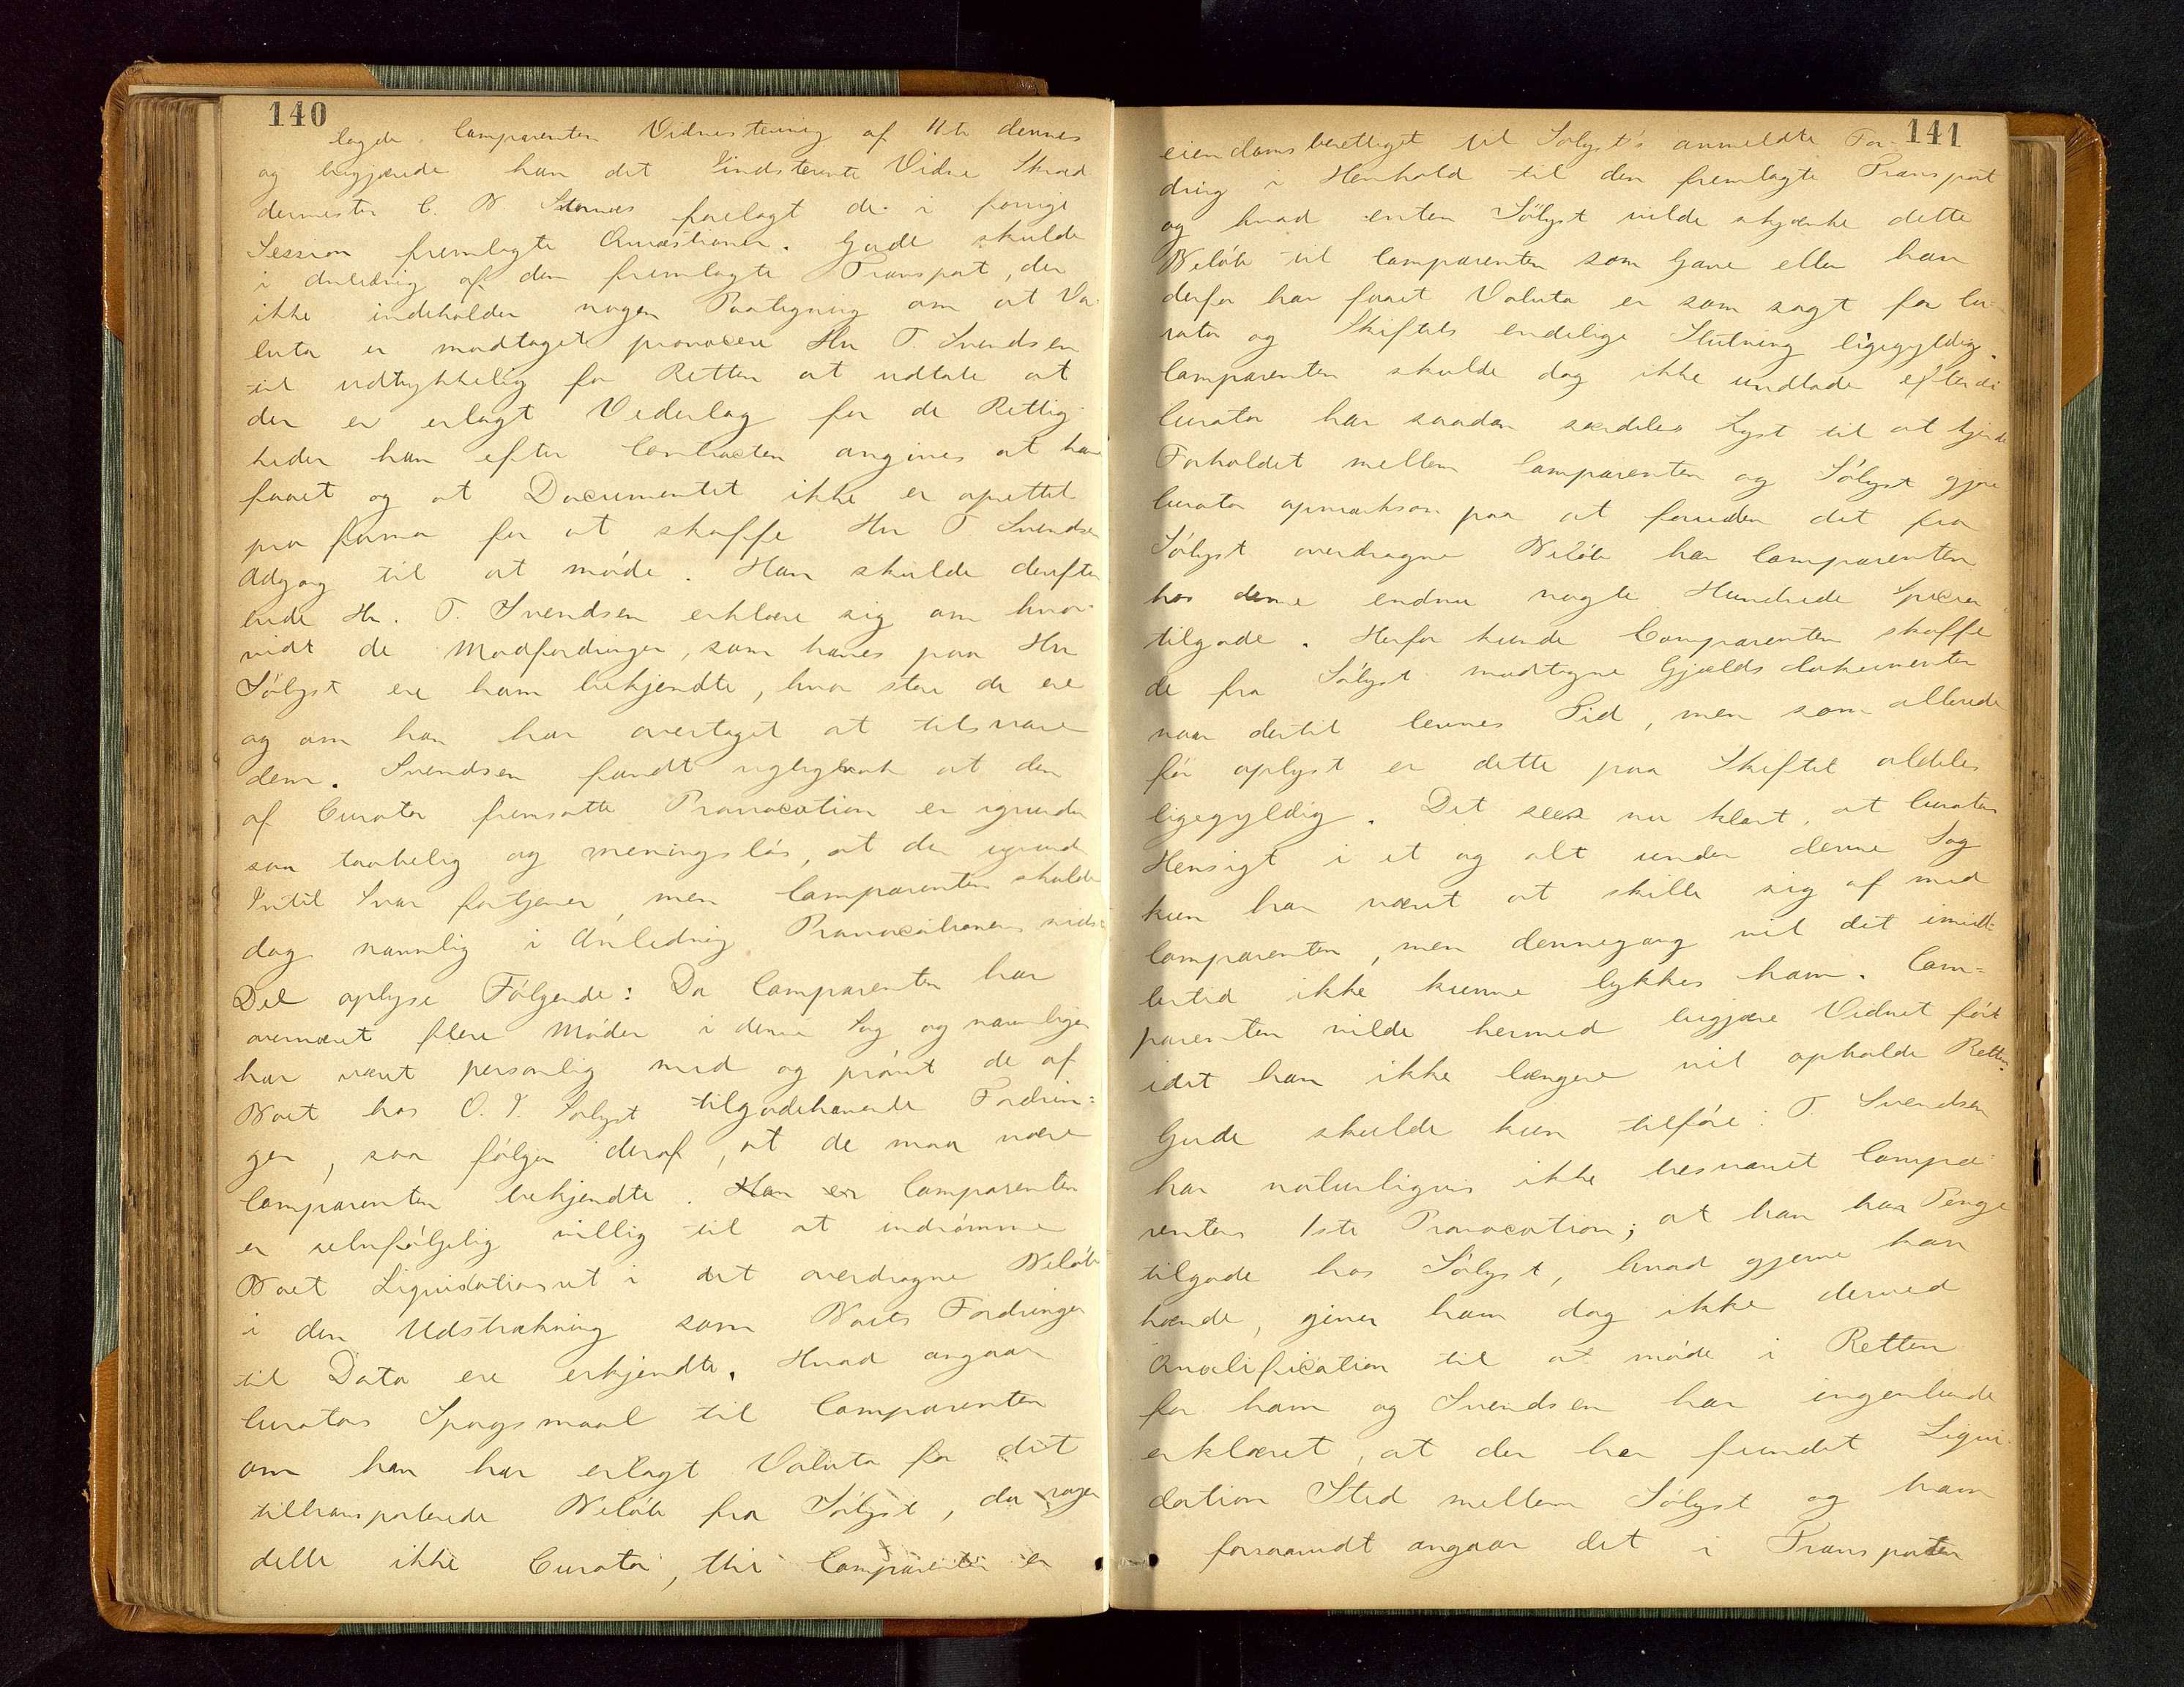 140
lagde Comparenten Vidnestevning af 11te dennes
og begjærede han det Vidne Skræd
dermester C. N. forelagt de i forrige
Session fremlagte Quæstioner. Gude skulde
i Anledning af den fremlagte Transport, der
ikke indeholder nogen Paategning om at Va-
luta er modtaget provocere Hr T. Svendsen
til udtrykkelig for Retten at udtale at
der er erlagt Vederlag for de Rettig-
heder han efter Contracten angives at have
faaet og at Documentet ikke er oprettet
pro forma for at skaffe Hr T Svendsen
Adgang til at møde. Han skulde derefter
bede Hr. T. Svendsen erklære sig om hvor-
vidt de Modfordringer, som haves paa Hr
Sølyst ere ham bekjendte, hvor store de ere
og om han har overtaget at tilsvare
dem. Svendsen fandt at den
af Curator fremsatte Provocation er igrunden
saa taabelig og meningsløs, at den igrunden
Intet Svar fortjener, men Comparenten skulde
dog navnlig i Anledning Provocationens sidste
Del oplyse Følgende: Da Comparenten har
overværet flere Møder i denne Sag og navnligen
har været personlig med og prøvet de af
Boet hos O. J. Sølyst tilgodehavende Fordrin=
ger, saa følger deraf, at de maa være
Comparenten bekjendte. Comparenten
er selvfølgelig villig til at indrømme
Boet Liquidationsret i det overdragne Beløb
i den Udstrækning som Boets Fordringer
til Dato ere erkjendte. Hvad angaar
Curators Spørgsmaal til Comparenten
om han har erlagt Valuta for det
tiltransporterede Beløb fra Sølyst, da rager
dette ikke Curator, thi Comparenten er
141
eiendomsberettiget til Sølyst's anmeldte For-
dring i Henhold til den fremlagte Transport
og hvad enten Sølyst vilde skjænke dette
Beløb til Comparenten som Gave eller han
derfor har faaet Valuta er som sagt for Cu-
rator og Skiftets endelige Slutning ligegyldig.
Comparenten skulde dog ikke undlade efterdi
Curator har saadan særdeles Lyst til at kjende
Forholdet mellem Comparenten og Sølyst gjøre
Curator opmærksom paa at foruden det fra
Sølyst overdragne Beløb har Comparenten
hos denne endnu nogle Hundrede Specier
tilgode. Herfor kunde Comparenten skaffe
de fra Sølyst modtagne Gjældsdokumenter
naar dertil levnes Tid, men som allerede
før oplyst er dette paa Skiftet aldeles
ligegyldig. Det sees nu klart, at Curators
Hensigt i et og alt under denne Sag
kun har været at skille sig af med
Comparenten, men dennegang vil det imid-
lertid ikke kunne lykkes ham. Com=
parenten vilde hermed begjære Vidnet ført
idet han ikke længere vil opholde Retten.
Gude skulde kun tilføie: T. Svendsen
har naturligvis ikke besvaret Compa-
rentens 1ste Provocation; at han har Penge
tilgode hos Sølyst, hvad gjerne kan
hænde, giver ham dog ikke derved
Qvalification til at møde i Retten
for ham og Svendsen har ingenlunde
erklæret, at der har fundet Liqui-
dation Sted mellem Sølyst og ham
forsaavidt angaar det i Transporten